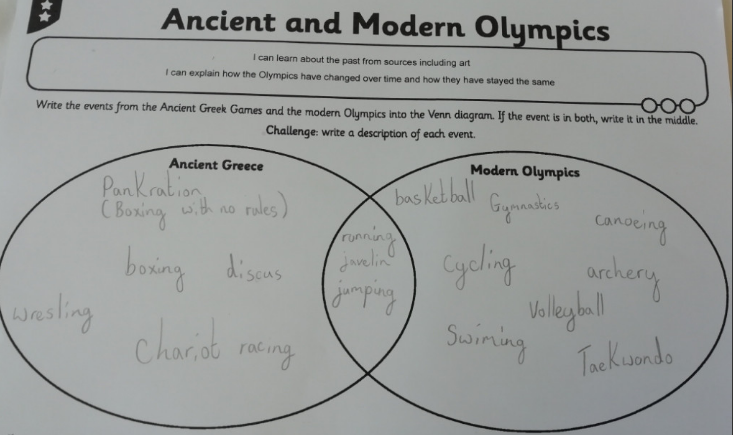 Ancient and Modern Olympics
I can learn about the past from sources including art
I can explain how the Olympics have changed over time and how they have stayed the same
Write the events from the Ancient Greek Games and the modern Olympics into the Venn diagram. If the event is in both, write it in the middle.
Challenge: write a description of each event.
Ancient Greece
PanKration
(Boxing with no rules)
boxing discus
wresling
Chariot racing
running
javelin
jumping
Modern Olympics
basketball
Gymnastics
canoeing
cycling
archery
Volleyball
Swiming
TaeKwondo